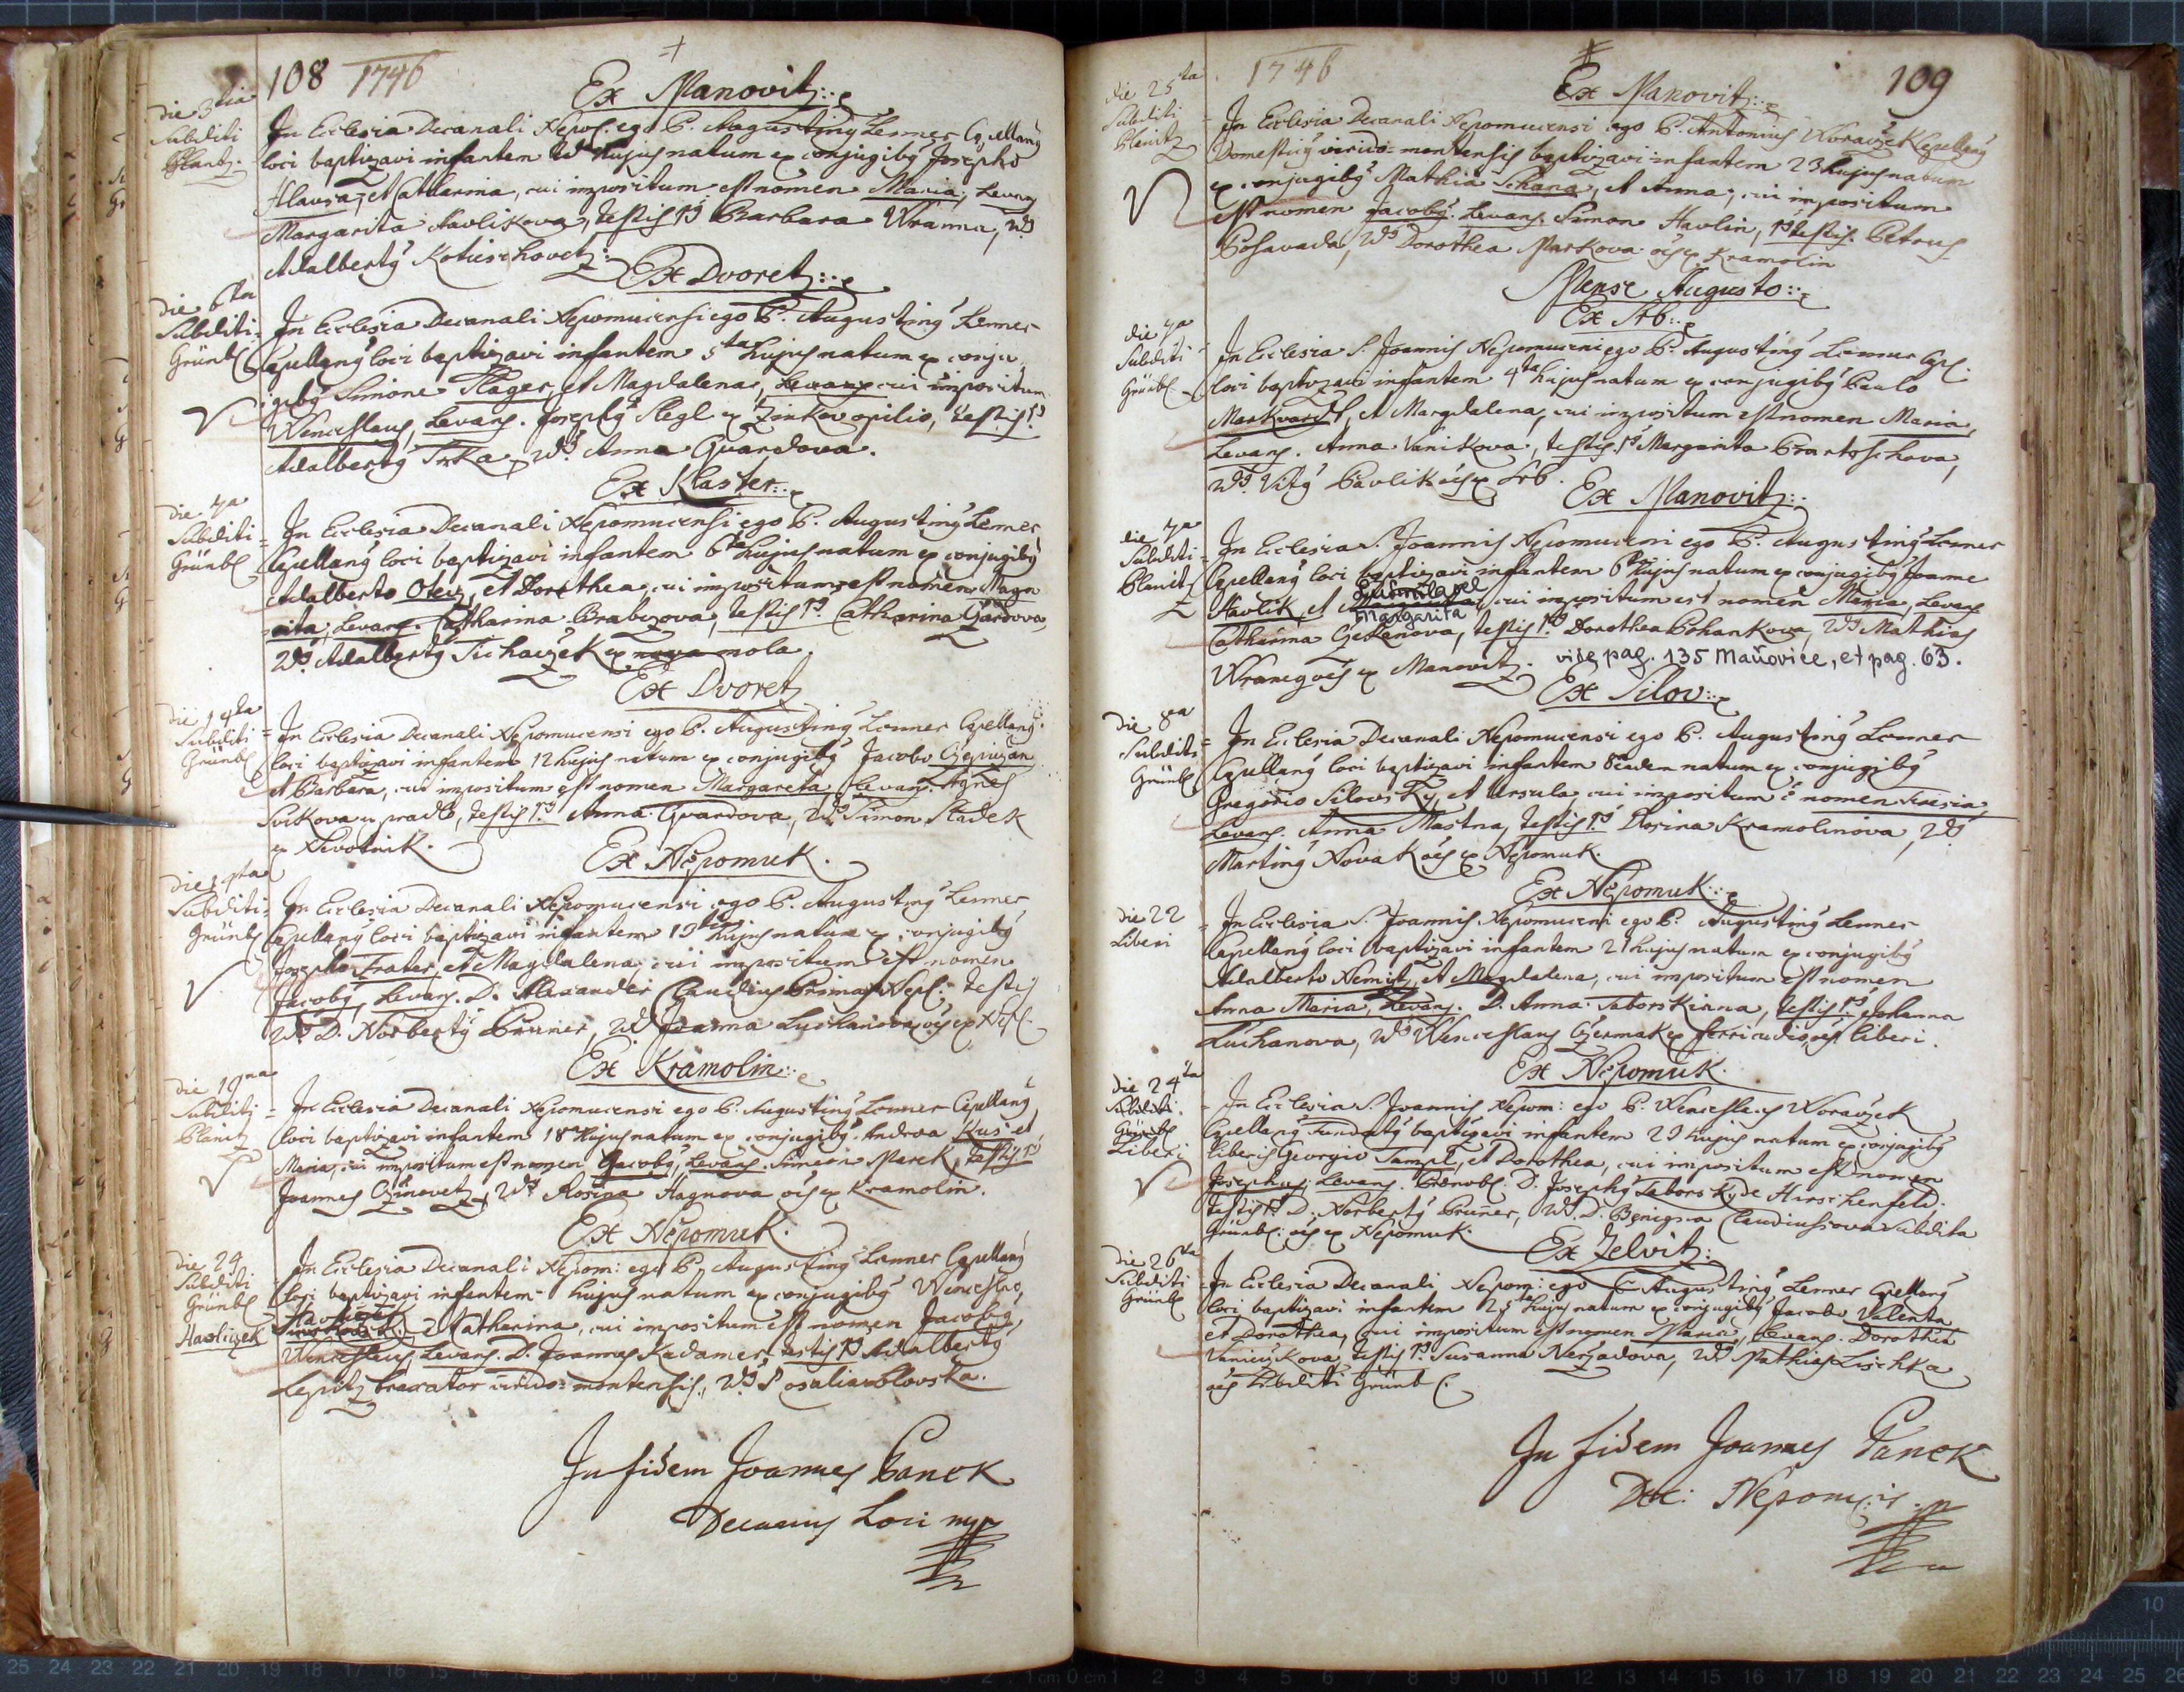 108 1746
Ex Manovitz
die 3tia
Subditi
Planitz.
In Ecclesia Decanali Nepom. ego P. Augustinus Lenner Capellanus
loci baptizavi infantem hujus natum ex conjugibus Josepho
Hlavsa, et Catharina, cui impositum est nomen Maria, Levans
Margarita Havlikova, testis 1us Barbara Wranna, 2dus
Adalbertus Kotieschovetz.
Ex Dvoretz
die 6ta
Subditi
Grünb.
In Ecclesia Decanali Nepomucensi ego P. Augustinus Lenner
Capellanus loci baptizavi infantem 5ta hujus natum ex conju
gibus Simone Slager, et Magdalena, Levans cui impositum
Wenceslaus, Levans. Josephus Slegl ex Zinkov opilio, testis 1us
Adalbertus Trka, 2dus Anna Gvardova.
Ex Klaster
die 7a
Subditi
Grünb.
In Ecclesia Decanali Nepomucensi ego P. Augustinus Lenner
Capellanus loci baptizavi infantem 6ta hujus natum ex conjugibus
Adalberto Otez, et Dorothea, cui impositum est nomen Marga
rita, Levans. Catharina Brabzova, testis 1us Catharina Gardova,
2dus Adalbertus Tichaczek ex nova mola.
Ex Dvoretz
die 14ta
Subditi
Grünb.
In Ecclesia Decanali Nepomucensi ego P. Augustinus Lenner Capellanus
loci baptizavi infantem 12 hujus natum ex conjugibus Jacobo
et Barbara, cui impositum est nomen Margareta, Levans. Agnes
Sikova ex pradlo, testis 1us Anna Gvardova, 2dus Simon Sladek
ex Nivotnik.
Ex Nepomuk.
Subditi
Grünb.
In Ecclesia Decanali Nepomucensi ego P. Augustinus Lenner
Capellanus loci baptizavi infantem hujus natum ex conjugibus
Josepho Frater, et Magdalena, cui impositum est nomen
Jacobus, Levans. D. Alexander Claudius Primas Nep. testis
D. Norbertus Pruner, 2dus Joanna Luchanova, ex Nep.
Ex Kramolin
die 19na
Subditi
Planitz
In Ecclesia Decanali Nepomucensi ego P. Augustinus Lenner Capellanus
loci baptizavi infantem 18 hujus natum ex conjugibus Andrea Kusi et
Maria, cui impositum est nomen Jacobus, Levans. Simeon Marek, testis 1us
Joannes Czinovetz, 2dus Rosina Hagnova ex Kramolin.
Ex Nepomuk.
die 24
Subditi
Grünb.
Havliczek
In Ecclesia Decanali Nepom: ego P. Augustinus Lenner Capellanus
loci baptizavi infantem hujus natum ex conjugibus Wenceslao
Havliczek Catharina, cui impositum est nomen Jacobus,
Wenceslaus, Levans. D. Joannes Kadamer, testis 1us Adalbertus
Lepitz braxator virido-montensis, 2dus Rosalia
In fidem Joannes Panek
Decanus Loci mp
1746
109
Ex Manovitz
die 25ta
Subditi
Planitz
In Ecclesia Decanali Nepomucensi ego P. Antonius Woraczek Capellanus
Domesticus virido-montensis baptizavi infantem 23 hujus natum
ex conjugibus Mathia Schana, et Anna, cui impositum
est nomen Jacobus. Levans. Simon Havlin, 1us testis. Petrus
Posavada, 2dus Dorothea Markova ex Kramolin
Mense Augusto
Ex Srb
die 7a
Subditi
Grünb.
In Ecclesia S. Joannis Nepomuceni ego P. Augustinus Lenner Cap.
loci baptizavi infantem 4ta hujus natum ex conjugibus Paulo
Markvardt, et Margdalena, cui impositum est nomen Maria,
Levans. Anna Vanikova, testis 1us Margarita Bartoschova,
2dus Vitus Pavlik ex Srb.
Ex Manovitz
die 7a
Subditi
Planitz
In Ecclesia S. Joannis Nepomuceni ego P. Augustinus Lenner
Capellanus loci baptizavi infantem 6ta hujus natum ex conjugibus Joanne
Havlik, et Ludmila vel Margarita, cui impositum est nomen Maria, Levans
Catharina Czekanova, testis 1us Dorothea Bohankova, 2dus Mathias
ex Manovitz. vide pag. 135 Maňovice, et pag. 63.
Ex Silov
die 8va
Subditi
Grünb.
In Ecclesia Decanali Nepomucensi ego P. Augustinus Lenner
Capellanus loci baptizavi infantem 8va eadem natum ex conjugibus
Gregorio Silovsky, et Ursula cui impositum e nomen Teresia,
Levans. Anna Mastna, testis 1us Rosina Kramolinova, 2dus
Martinus Novak ex Nepomuk.
Ex Nepomuk
die 22
Liberi
In Ecclesia S. Joannis Nepomuceni ego P. Augustinus Lenner
Capellanus loci baptizavi infantem 21 hujus natum ex conjugibus
Adalberto Nemitz, et Magdalena, cui impositum est nomen
Anna Maria, Levans. D. Anna Taborskianna, testis 1us Johanna
Luchanova, 2dus Wenceslaus Czermak ex ferricudio, liberi.
Ex Nepomuk.
die 24ta
Subditi.
Grünb.
Liberi
In Ecclesia S. Joannis Nepom: ego P. Wenceslaus Woraczek
Capellanus Fundatus baptizavi infantem 23 hujus natum ex conjugibus
liberis Georgio Tampl, et Dorothea, cui impositum est nomen
Josephus. Levans. Prenob. D. Josephus Taborsky de Hirschenfeld.
testis 1us D. Norbertus Pruner, 2dus D. Benigna Claudiussova subdita
Grünb. ex Nepomuk.
Ex Zelvitz
die 26ta
Subditi
Grünb.
In Ecclesia Decanali Nepom: ego P. Augustinus Lenner Capellanus
loci baptizavi infantem 25ta hujus natum ex conjugibus Jacobo Valenta
et Dorothea, cui impositum est nomen Maria, Levans. Dorothea
Vaniczkova, testis 1us Susanna Nerzadova, 2dus Mathias Lischka
subditi Grünb.
In fidem Joannes Panek
Dec: Nepom.